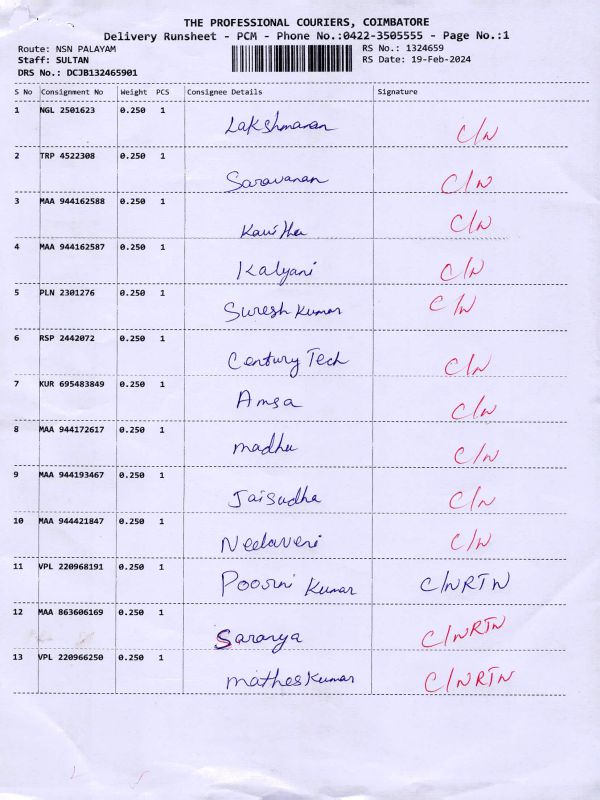 THE PROFESSIONAL COURIERS, COIMBATORE
Delivery Runsheet - PCM - Phone No.:0422-3505555 - Page No.:1
Route: NSN PALAYAM RS No.: 1324659
Staff: SULTAN RS Date: 19-Feb-2024
DRS No.: DCJB132465901
S No Consignment No Weight PCS Consignee Details Signature
1 NGL 2501623 0.250 1 Lakshmanan C/N
2 TRP 4522308 0.250 1 Saravanan C/N
3 MAA 944162588 0.250 1 Kavitha C/N
4 MAA 944162587 0.250 1 Kalyani C/N
5 PLN 2301276 0.250 1 Suresh Kumar C/N
6 RSP 2442072 0.250 1 Century Tech C/N
7 KUR 695483849 0.250 1 Amsa C/N
8 MAA 944172617 0.250 1 madhu C/N
9 MAA 944193467 0.250 1 Jaisudha C/N
10 MAA 944421847 0.250 1 Neelaveni C/N
11 VPL 220968191 0.250 1 Poorni Kumar C/NRTN
12 MAA 863606169 0.250 1 Saranya C/NRTN
13 VPL 220966250 0.250 1 mathes Kumar C/NRTN